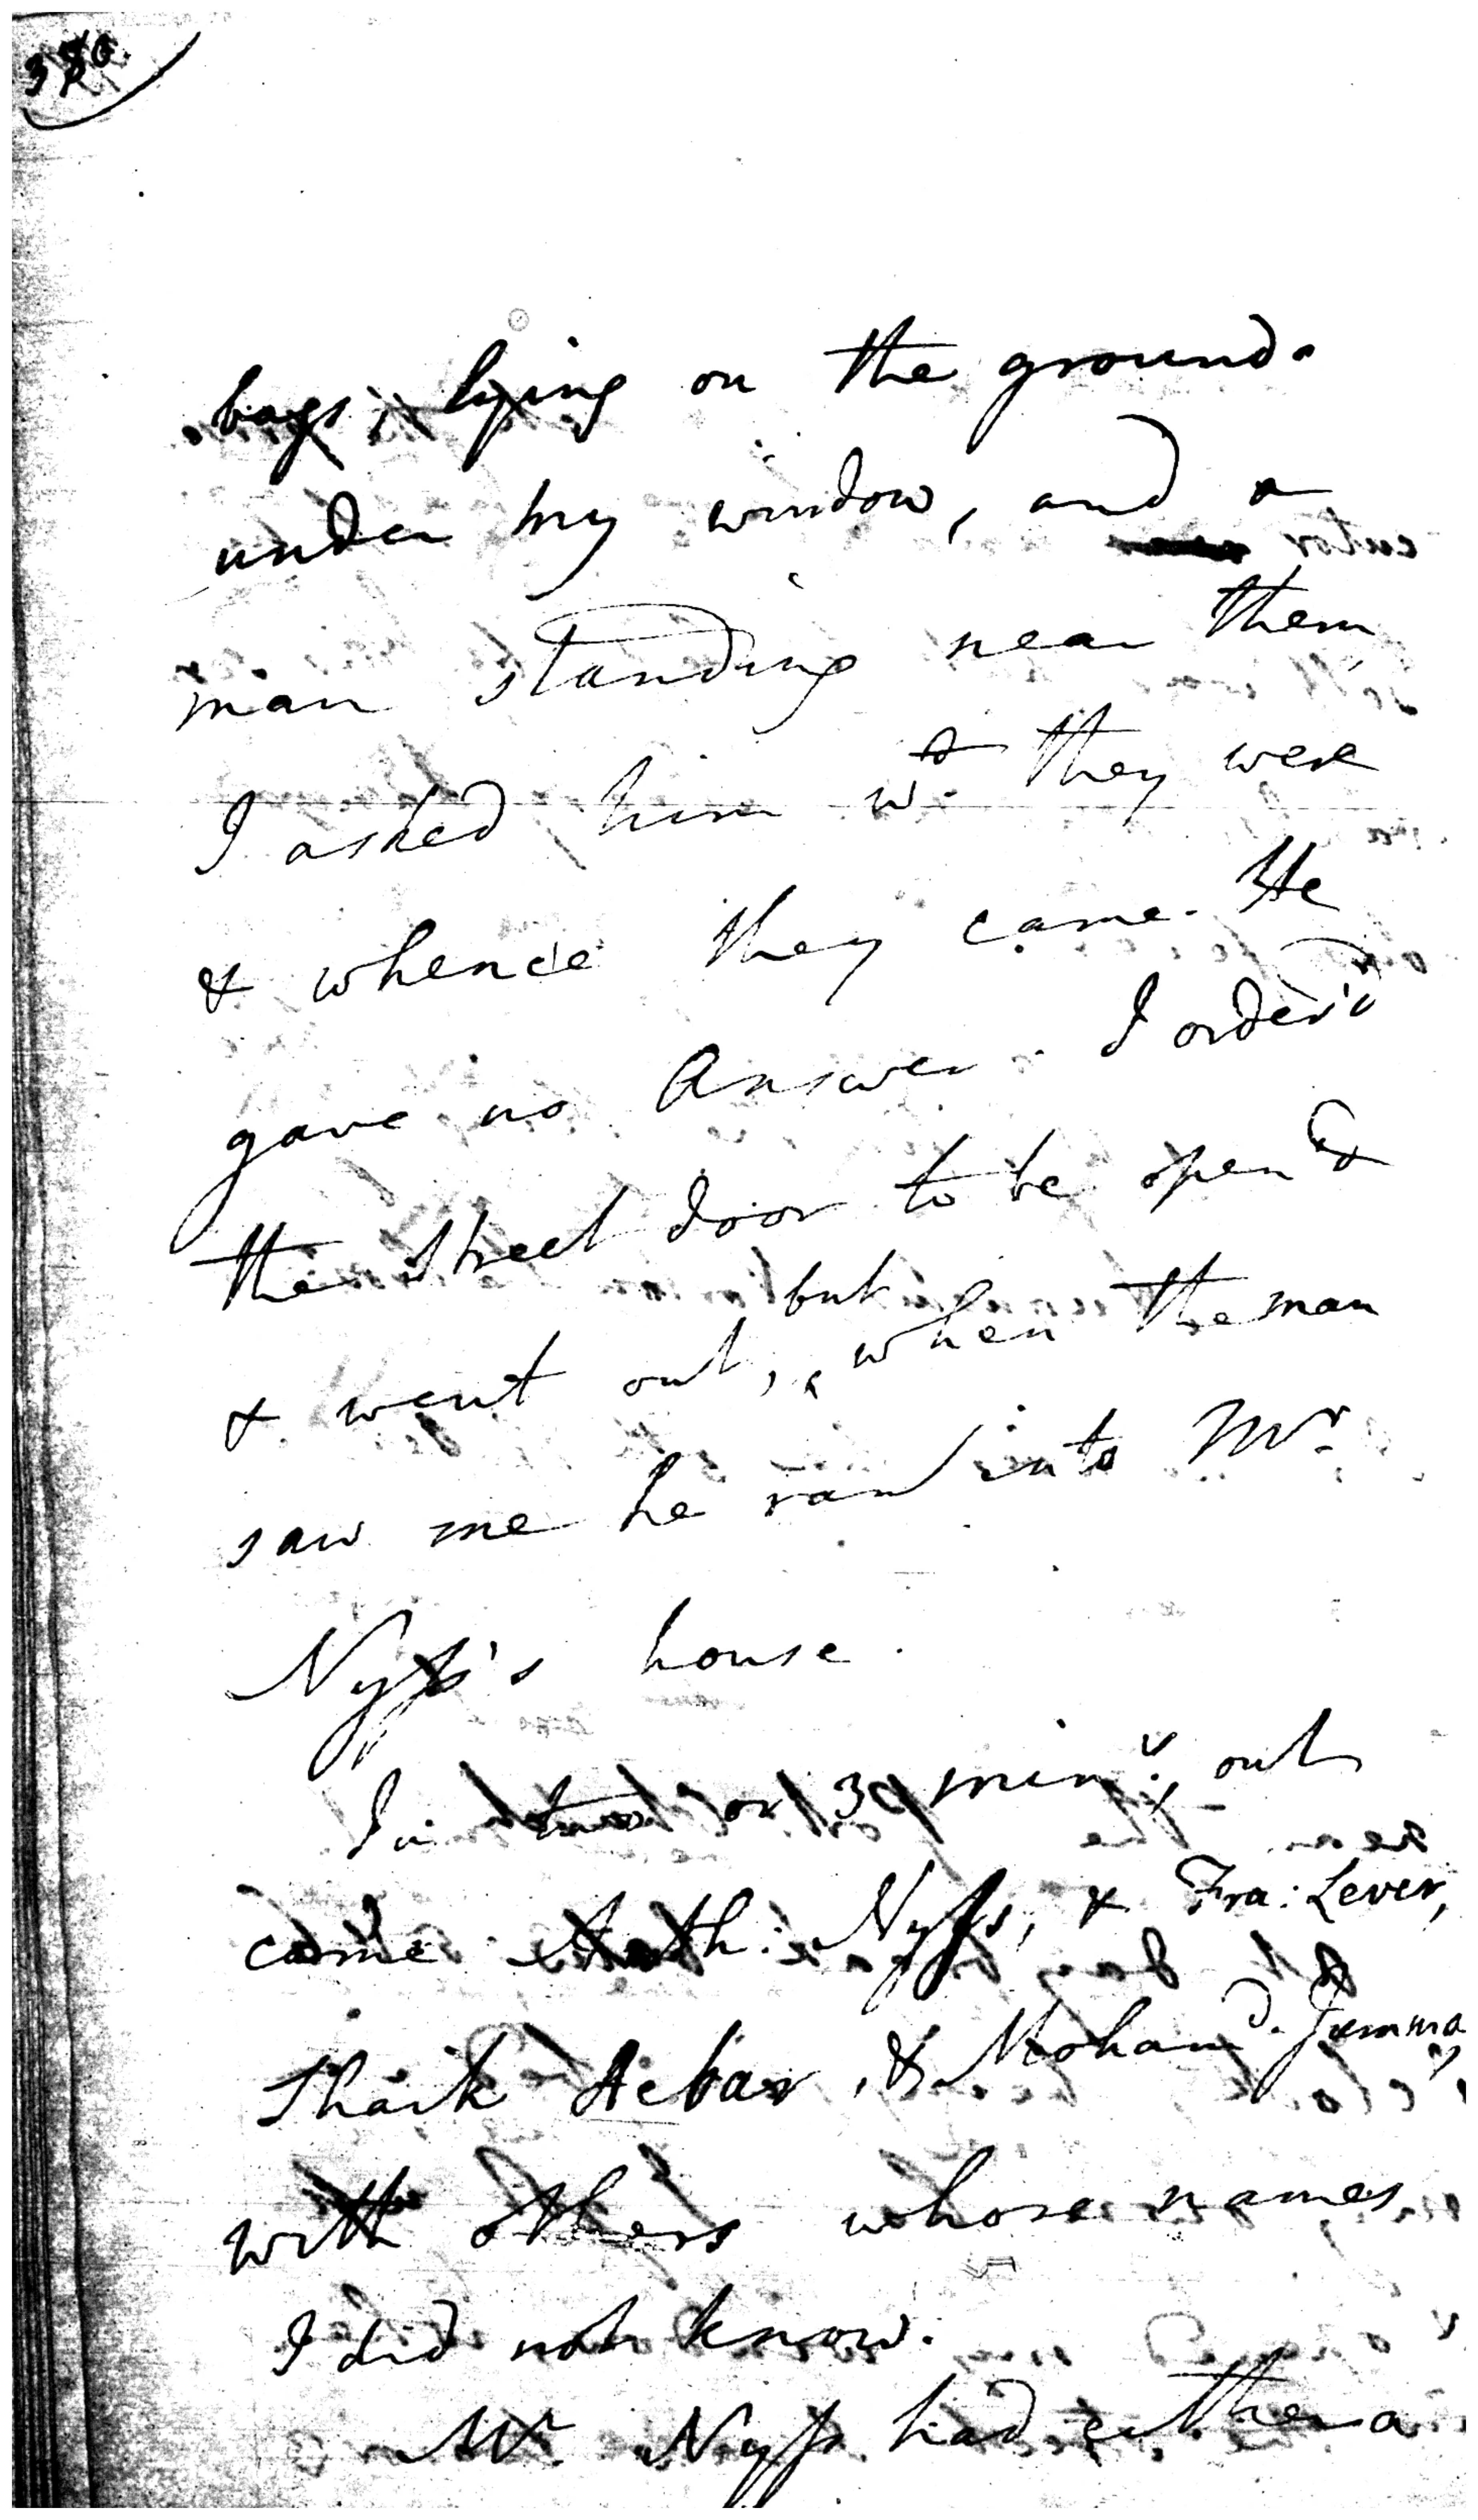 bags, lying on the ground.
under my window, and a
man standing near them,
I asked him wt. they were
& whence they came. He
gave no Answer. I order'd
the street door to be open'd
& went out, but when the man
saw me he ran into Mr.
Nyss's house.
In two or 3 mins., out
came Nyss, & Fra: Lever,
Shaik Acbar, & Mohamd. Jumma,
with others whose names
I did not know.
Mr. Nyss had either a